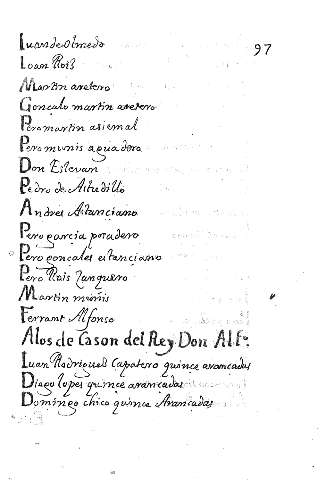 97
Iuan de olmedo
Ioan Rois
Martin aretero
Gonçalo martin aretero
Pero martin asiemal
Pero munis aguadero
Don Estevan
Pedro de Astudillo
Andres Astançiano
Pero garçia posadero
Pero gonçales estançiano
Pero Rois Zanquero
Martin munis
Ferrant Alfonso
A los de Cason del Rey Don Alfº.
Iuan Rodrigues Çapatero quince arancadas
Diago lopes quince arancadas
Domingo chico quince Arancadas